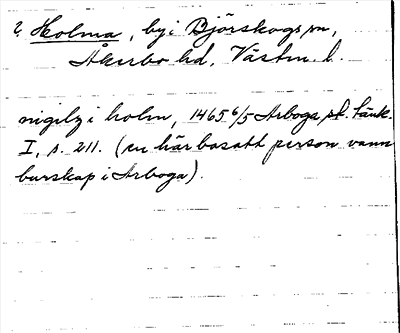 2. Holma, by i Björskogs sn,
Åkerbo hd, Västm. l.
i holm, 1465 6/5 Arboga st. tänk.
I, s. 211. (en här bosatt person vann
burskap i Arboga).